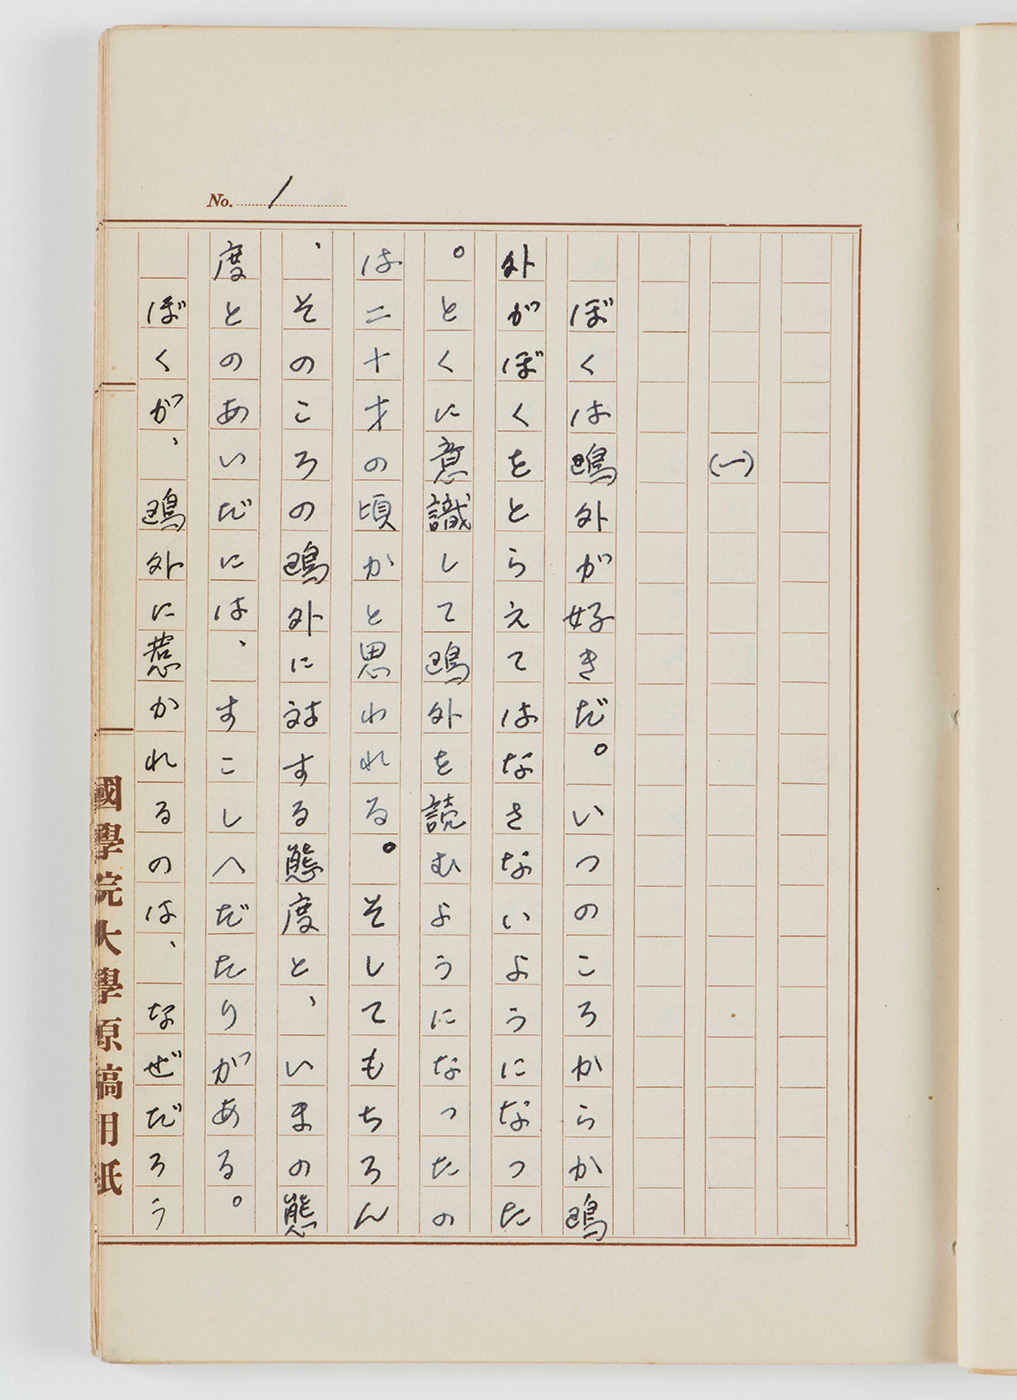 No. 1
(一)
ぼくは鴎外が好きだ。いつのころからか鴎
外がぼくをとらえてはなさないようになった
。とくに意識して鴎外を読むようになったの
は二十才の頃かと思われる。そしてもちろん
、そのころの鴎外に対する態度と、いまの態
度とのあいだには、すこしへだたりがある。
ぼくが、鴎外に惹かれるのは、なぜだろう
國學院大學原稿用紙